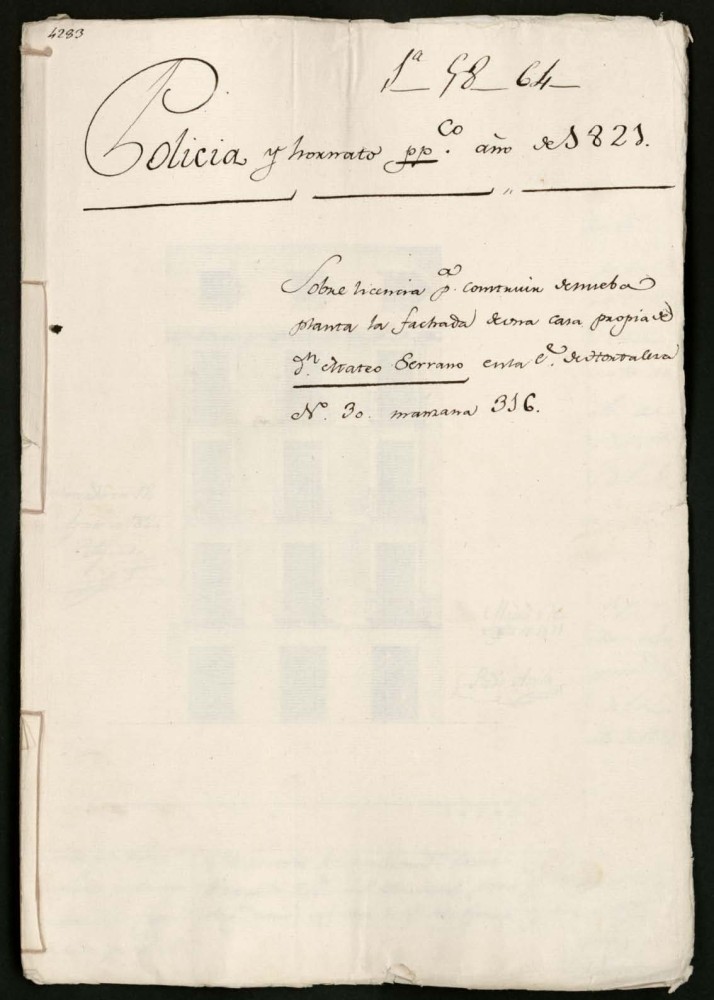 4283
1ª 58 64
Policia y hornato ppco. año de 1821.
Sobre licencia pª. construir de nueba
planta la fachada de una casa propia de
Dn. Mateo Serrano en la Ce. de Hortaleza
No. 30. manzana 316.